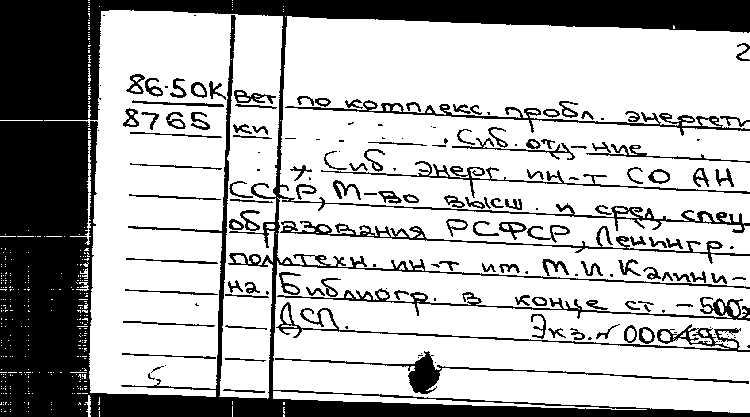 2
86-50К вет по комплекс. пробл. энергети
8765 ки . Сиб. отд-ние
Сиб. энерг. ин-т СО АН
СССР, М-во высш. и сред. спец
образования РСФСР, Ленингр.
политехн. ин-т им. М.И. Калини-
на. Библиогр. в конце ст. - 500э
ДСП. Экз. № 000495.
5